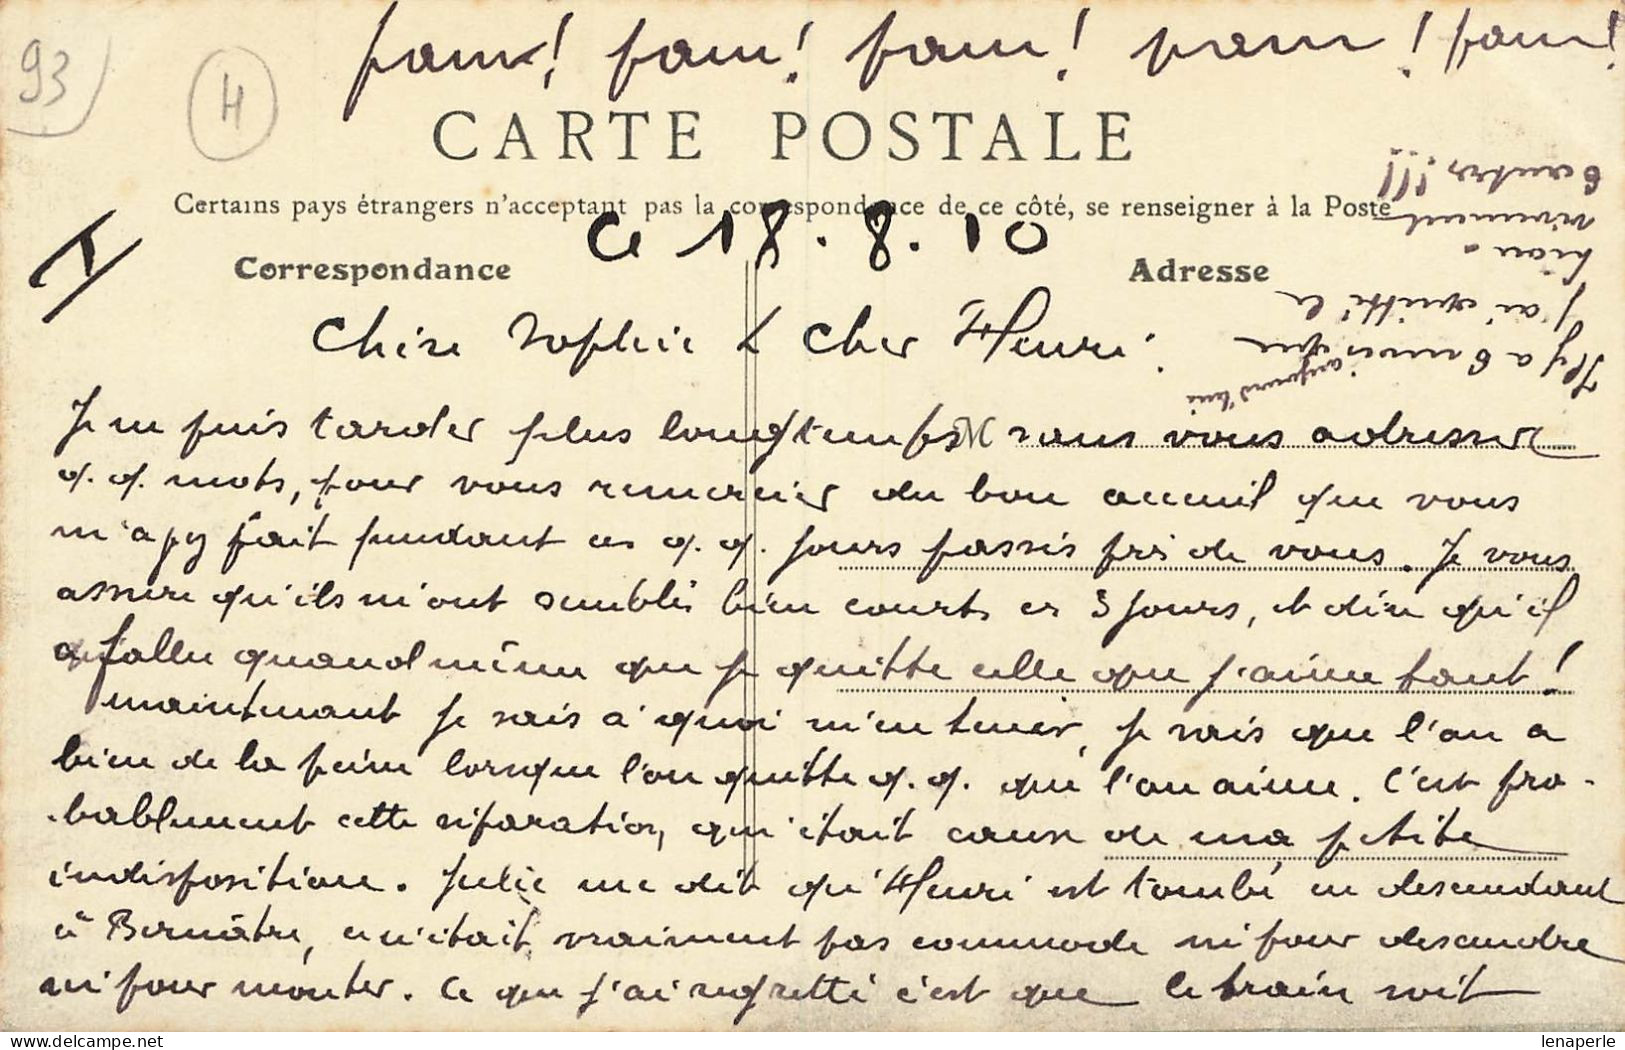 pam! pam! pam! pam! pam!
93
H
CARTE POSTALE
Certains pays étrangers n'acceptant pas la correspondance de ce côté, se renseigner à la Poste
Ce 18.8.10
Correspondance
Adresse
Chère Sophie & cher Henri.
Je ne puis tarder plus longtemps M sans vous adresser
q.q. mots, pour vous remercier du bon accueil que vous
m'a fait pendant ces q.q. jours passés près de vous. Je vous
assure qu'ils m'ont semblés bien courts ces 3 jours, et dire qu'il
a fallu quand même que je quitte celle que j'aime tant!
maintenant je sais à quoi m'en tenir, je sais que l'on a
bien de la peine lorsque l'on quitte q.q. que l'on aime. C'est pro-
bablement cette séparation, qui était cause de ma petite
indisposition. Julie me dit qu'Henri est tombé en descendant
à Bernâtre, ce n'était vraiment pas commode ni pour descendre
ni pour monter. Ce que j'ai regretté c'est que le train soit
Il y a 6 mois aujourd'hui que
j'ai quitté le
vivement
6 autres!!!
lenaperle